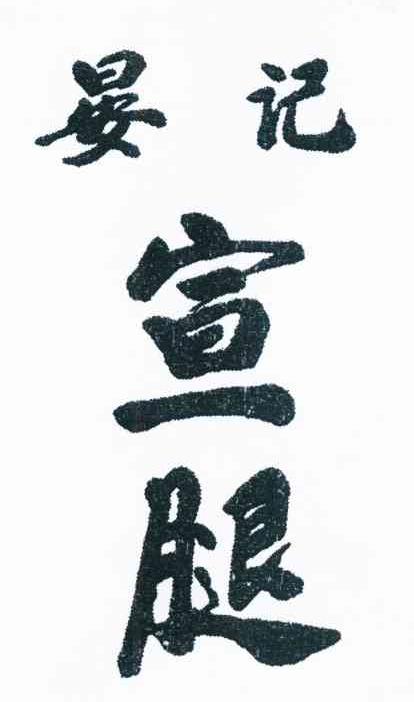 晏记
宣
腿